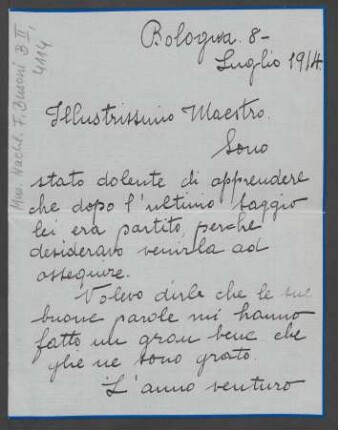 Bologna. 8-
Luglio 1914.
Illustrissimo Maestro.
Sono
stato dolente di apprendere
che dopo l'ultimo saggio
lei era partito, perché
desideravo venirla ad
ossequiare.
Volevo dirle che le sue
buone parole mi hanno
fatto un gran bene che
glie ne sono grato.
L'anno venturo
Mus. Nachl. F. Busoni B II,
4114